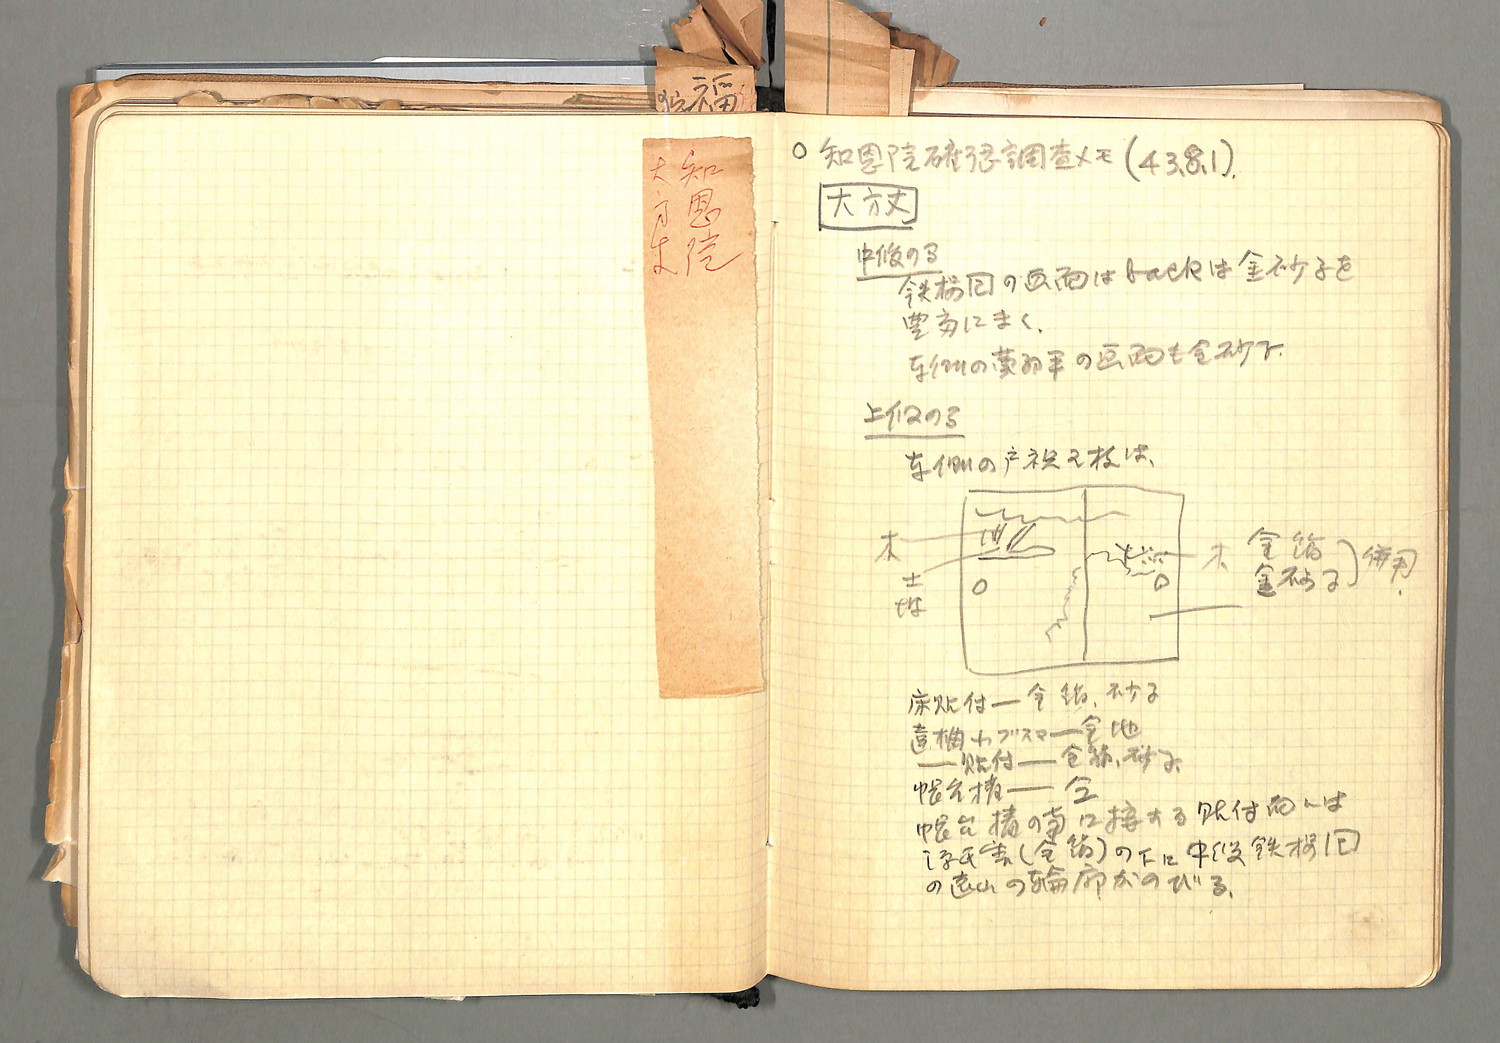 福
知恩院
大方丈
○ 知恩院障壁調査メモ (43.8.1).
大方丈
中段の間
鉄拐図の画面はbackは金砂子を
豊富にまく.
東側の画面も金砂子.
上段の間
東側の戸襖2枚は、
木
土地
木
金箔
金砂子
併用.
床貼付—金箔、砂子
違棚小ブスマ—金地
—貼付—金箔、砂子
帳台構—金
帳台構の南に接する貼付画には
源氏雲(金箔)の下に中段鉄拐図
の遠山の輪廓がのびる.